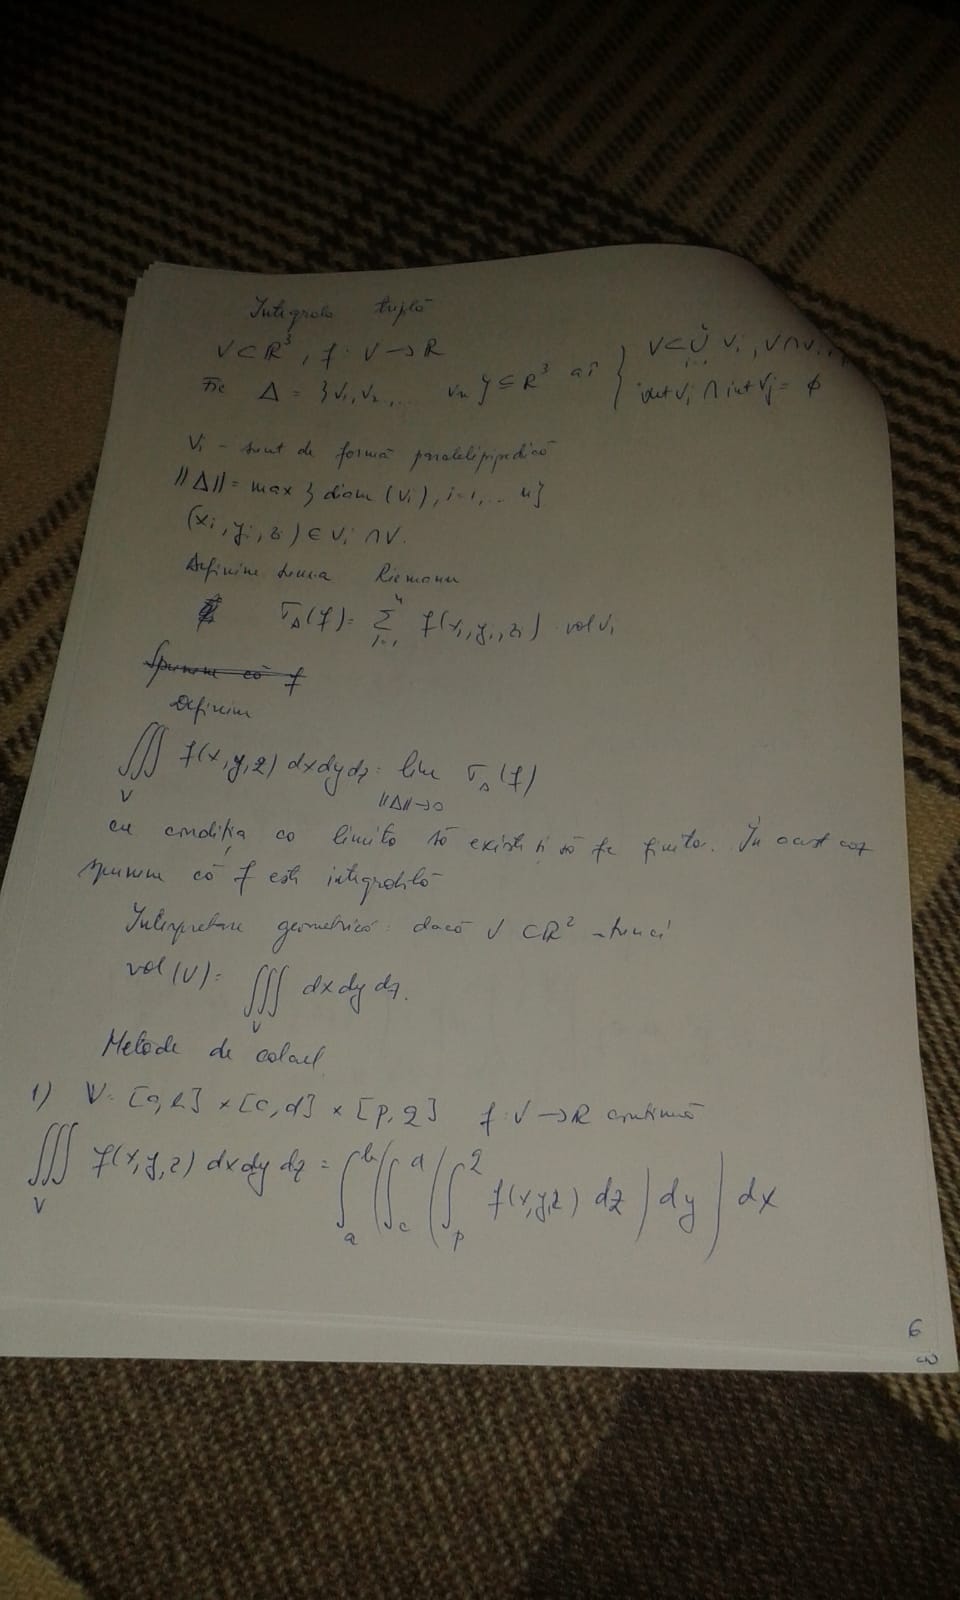 Integrala triplă
V⊂R³, f: V→R
Fie Δ = {V₁, V₂, ... Vn} ⊆ R³ aî { V⊂∪Vi, V∩Vi
int Vi ∩ int Vj = ∅
Vi - sunt de formă paralelipipedică
||Δ|| = max {diam (Vi), i=1, ... n}
(xi, yi, zi) ∈ Vi ∩ V.
Definim suma Riemann
σΔ(f) = Σ f(xi, yi, zi) · vol Vi
Spunem că f
Definim
∭_V f(x,y,z) dxdydz = lim_{||Δ||→0} σΔ(f)
cu condiția ca limita să existe și să fie finita. În acest caz
spunem că f este integrabilă
Interpretare geometrică: dacă V ⊂R² atunci
vol (V) = ∭_V dxdydz.
Metode de calcul
1) V = [a,b] × [c,d] × [p,q] f: V→R continuă
∭_V f(x,y,z) dxdydz = ∫_a^b (∫_c^d (∫_p^q f(x,y,z) dz) dy) dx
6